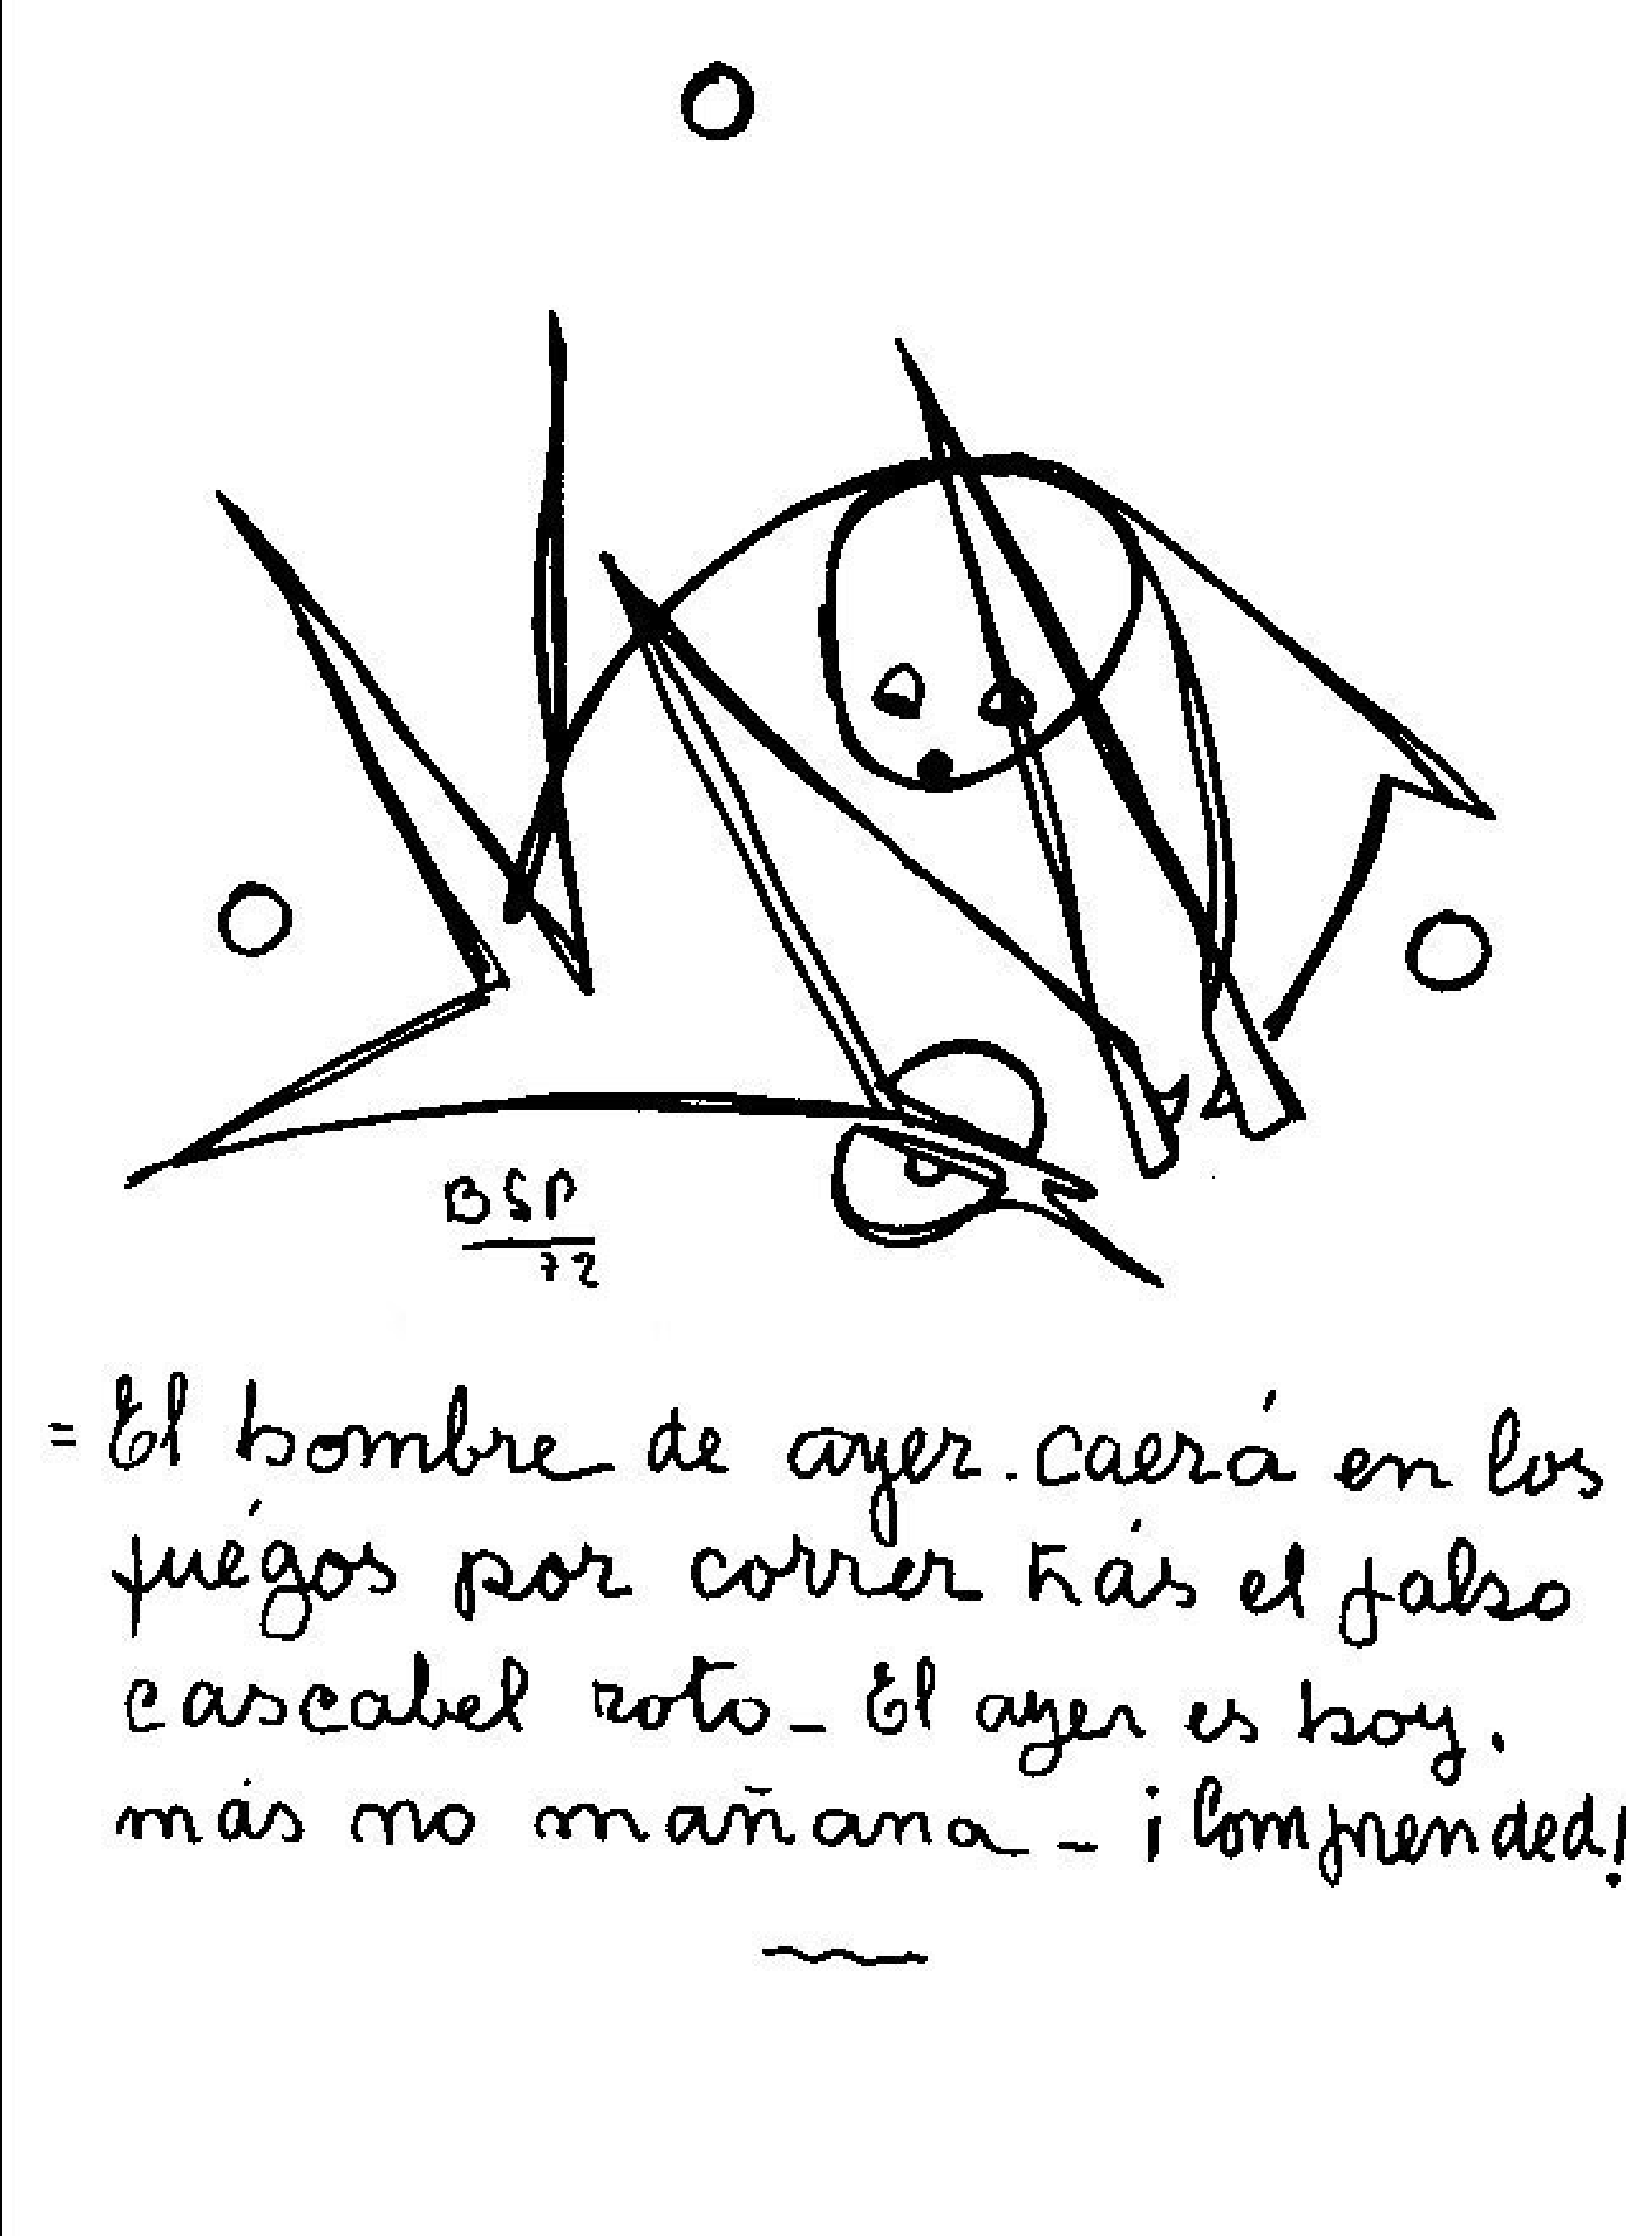 BSP
72
= El hombre de ayer. caerá en los
juégos por correr trás el falso
cascabel roto - El ayer es hoy.
más no mañana - ¡Comprended!